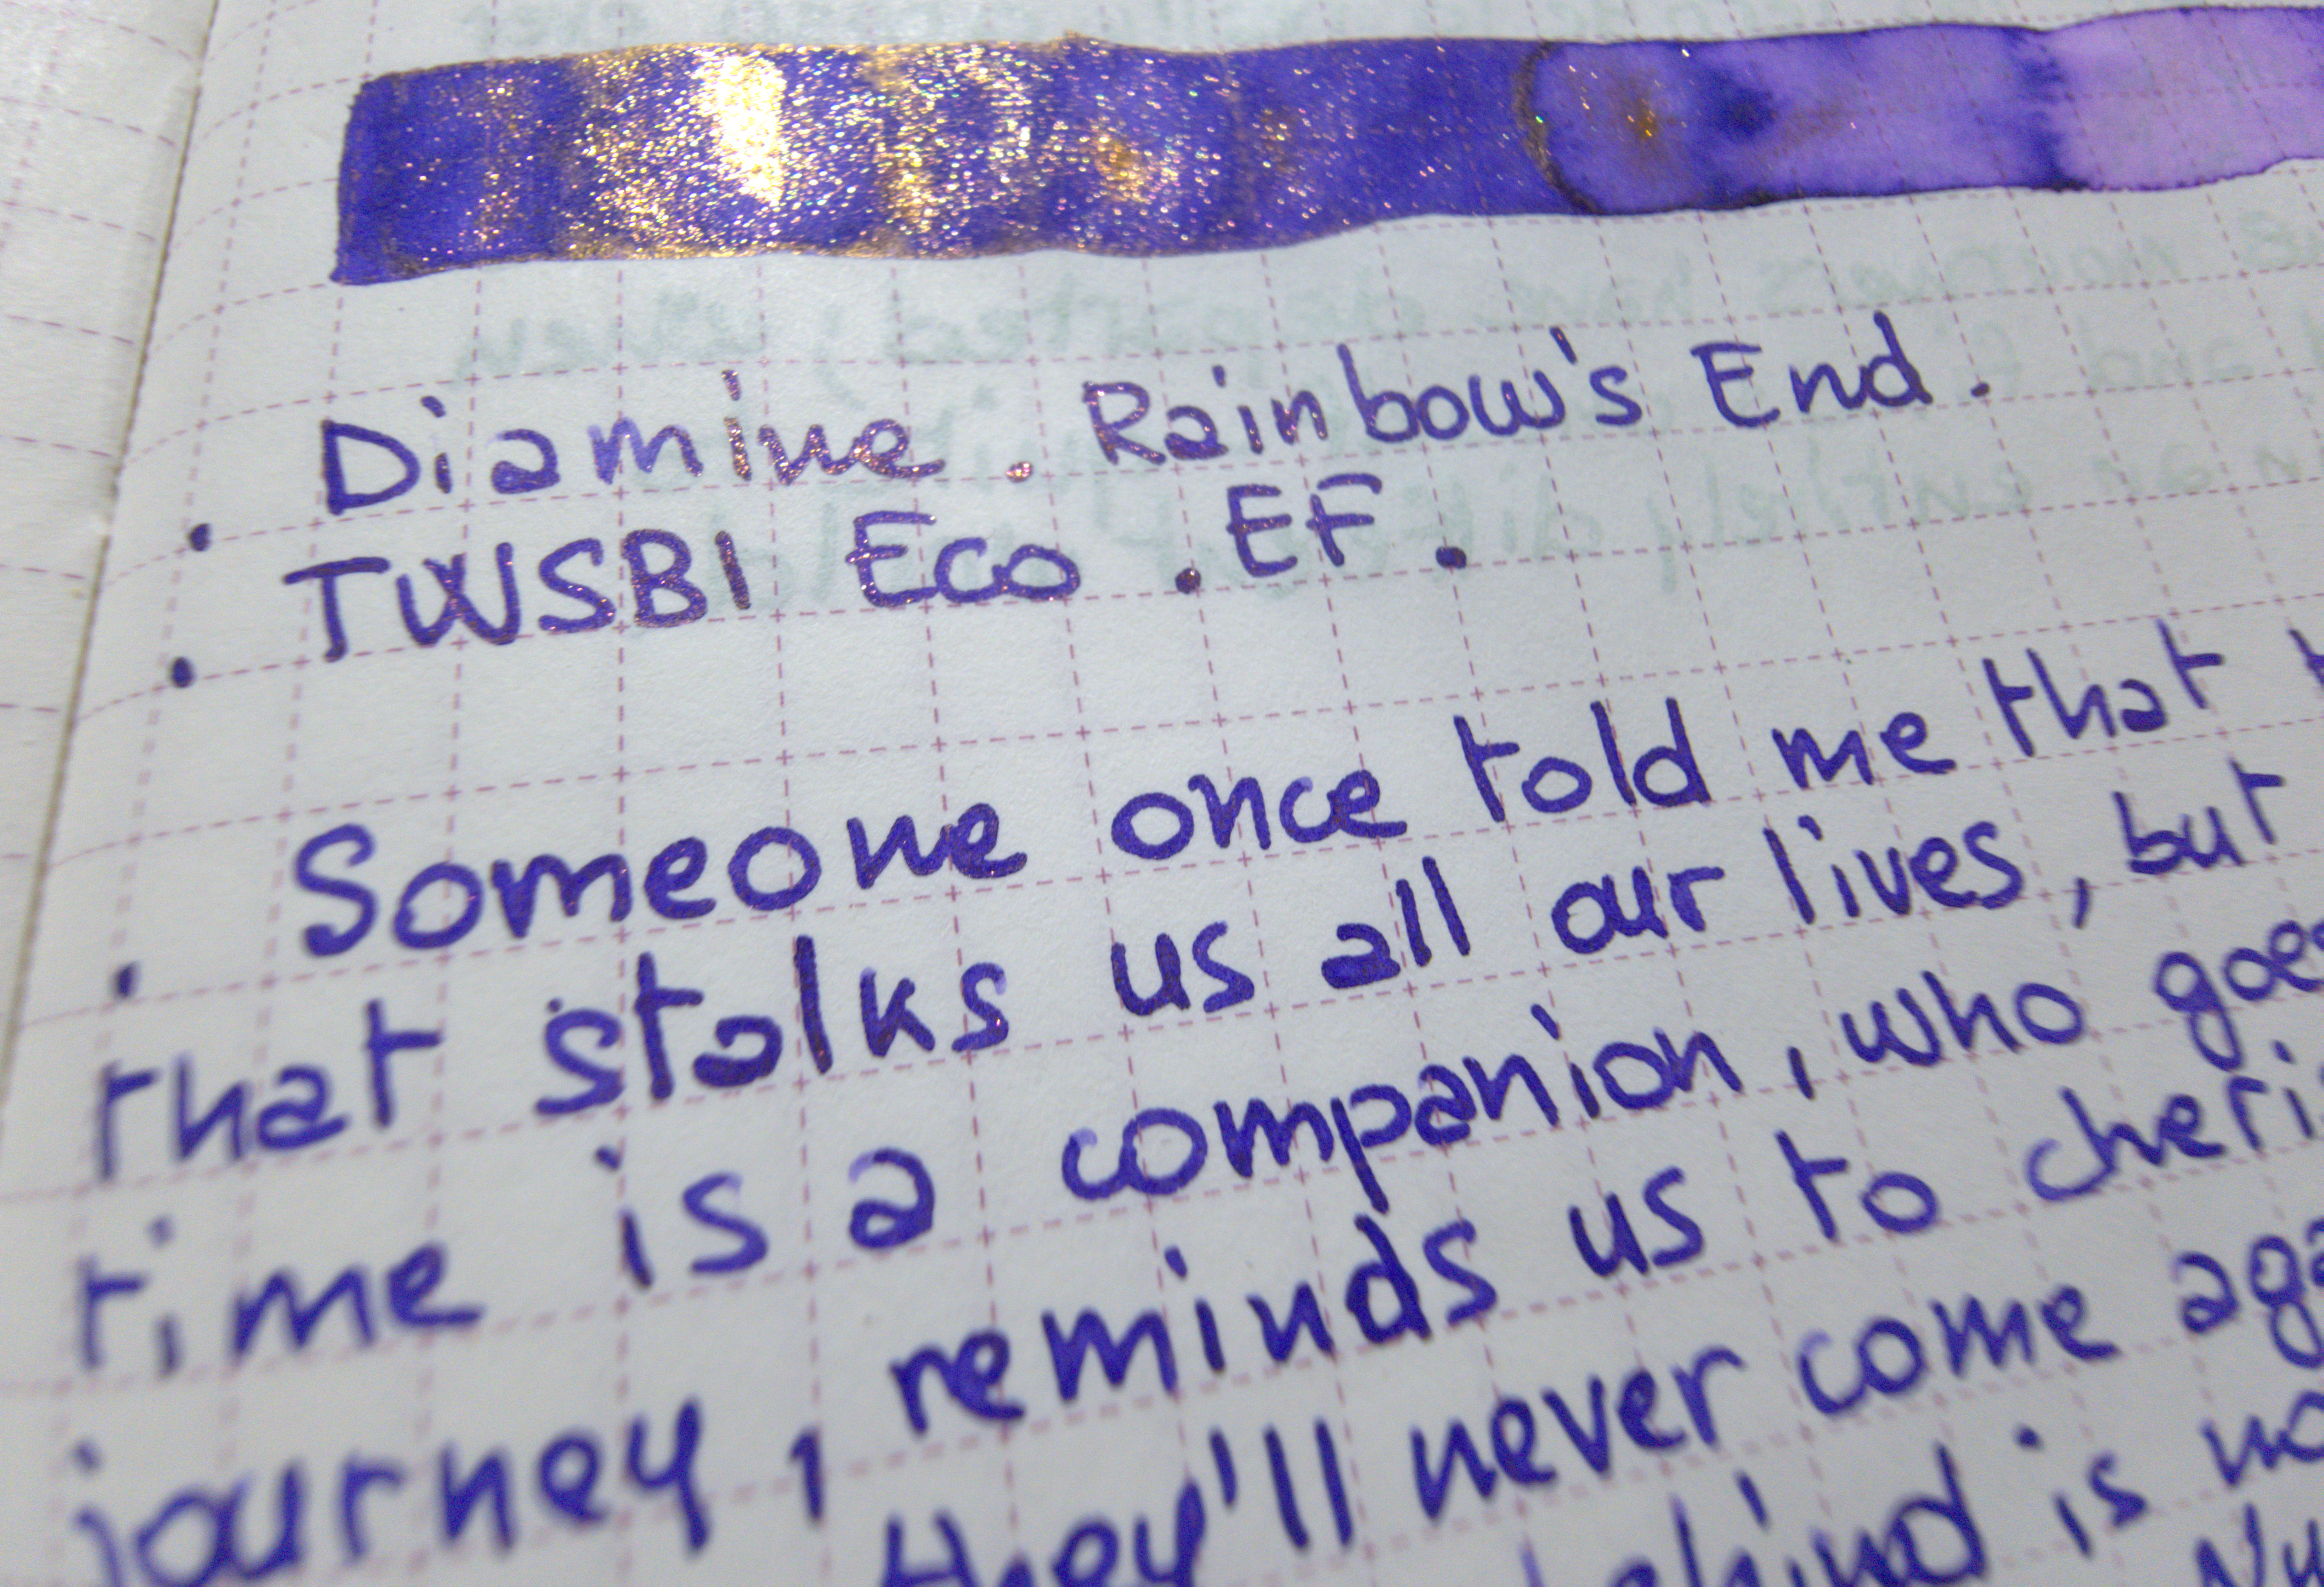 . Diamine . Rainbow's End .
. TWSBI Eco . EF .
. Someone once told me that
that stalks us all our lives, but
time is a companion, who goes
journey, reminds us to cheri
they'll never come aga
behind is no